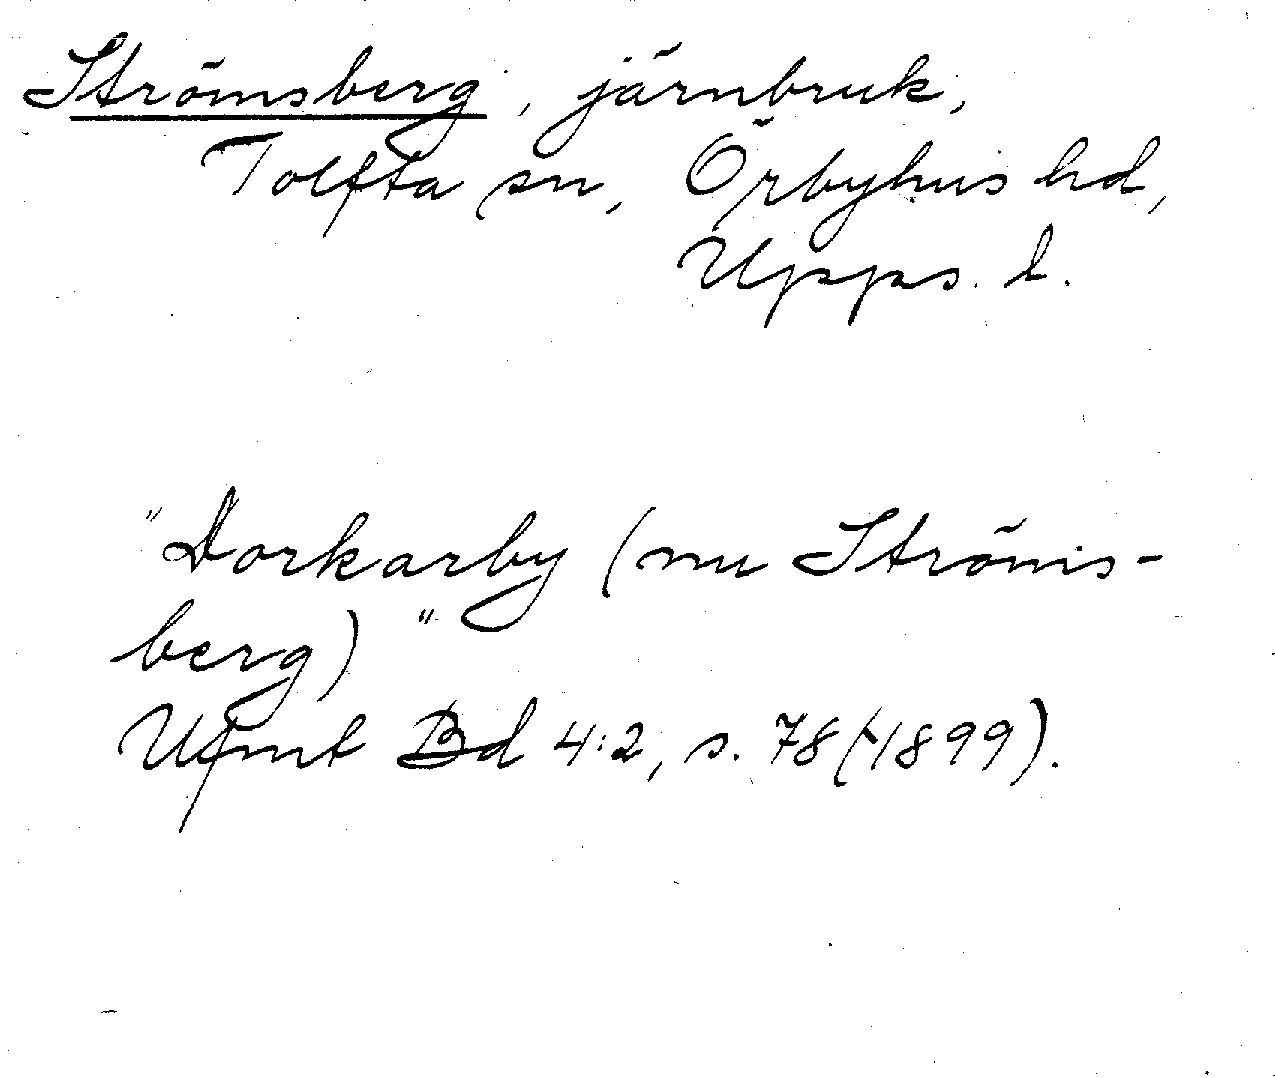 Strömsberg, järnbruk,
Tolfta sn, Örbyhus hd,
Upps. l.
"Dorkarby (nu Ströms-
berg)"
Ufmt Bd 4:2, s. 78 (1899).